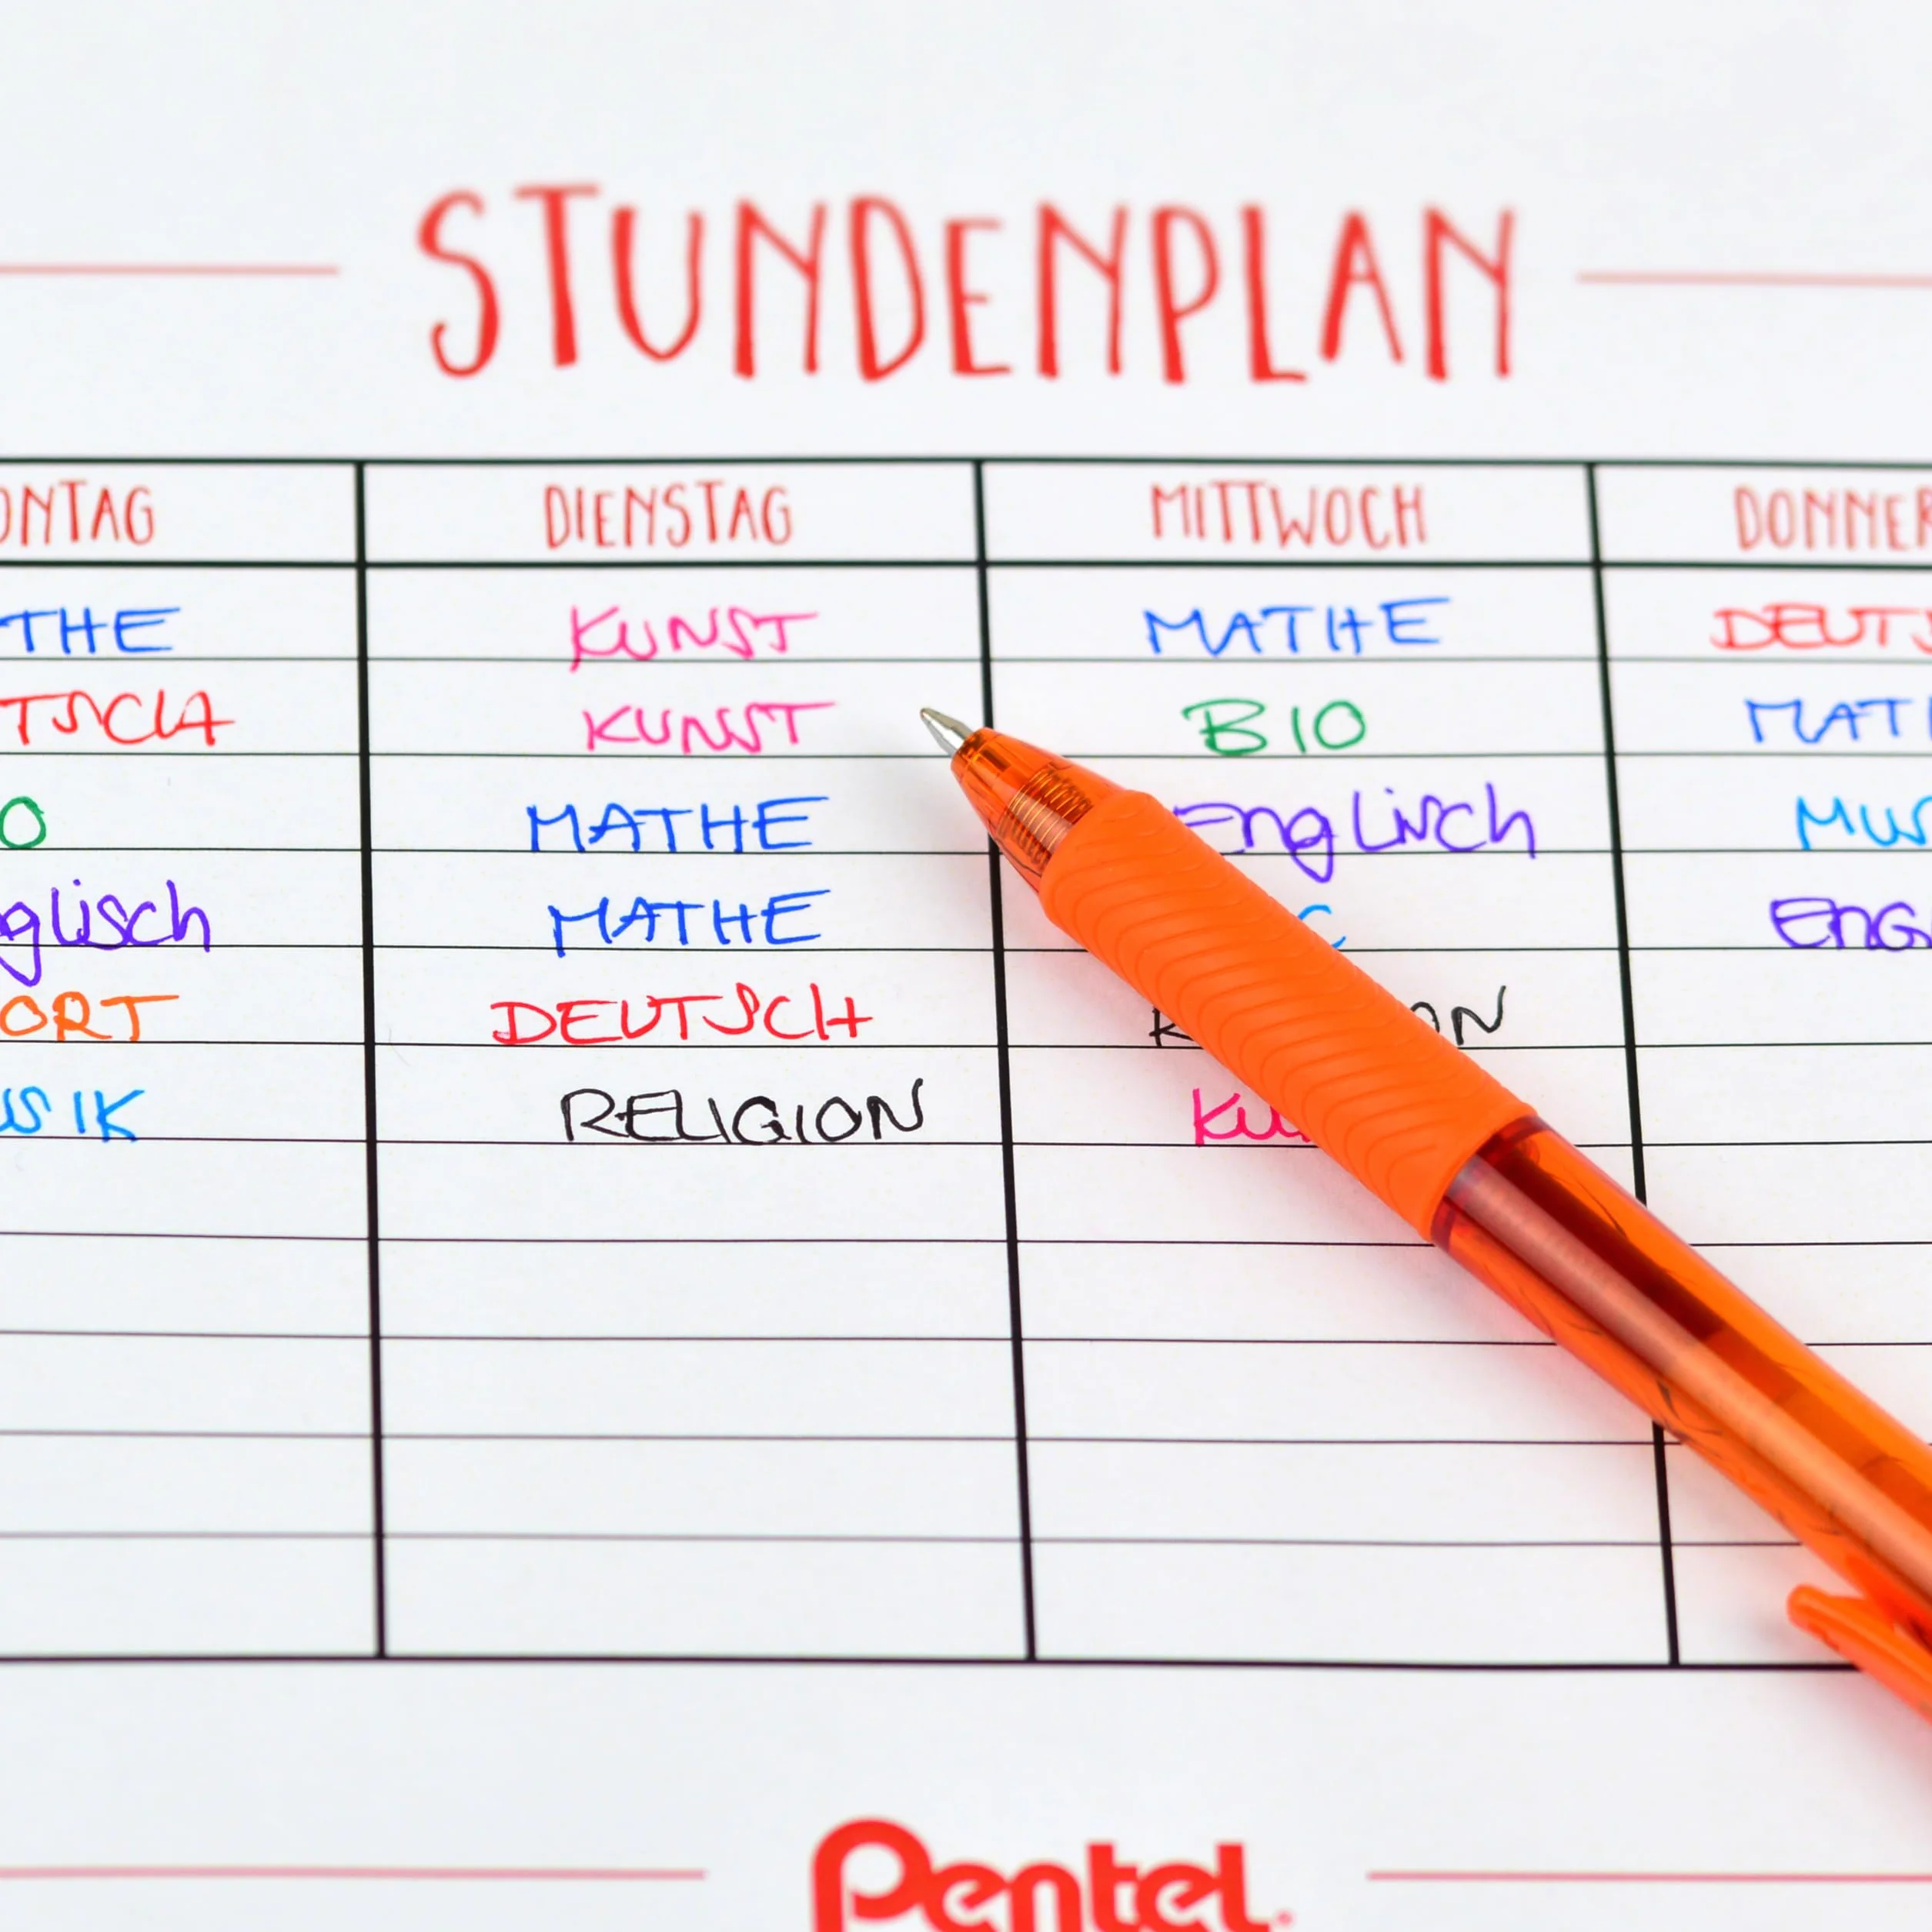 STUNDENPLAN
ONTAG DIENSTAG MITTWOCH DONNER
THE KUNST MATHE DEUTS
TSCH KUNST BIO MATH
O MATHE Englisch MUS
glisch MATHE C ENG
ORT DEUTSCH R ON
USIK RELIGION KU
Pentel